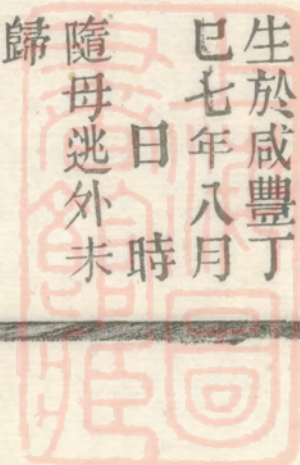 生於咸豐丁
巳七年八月
日　時
隨母逃外未
歸